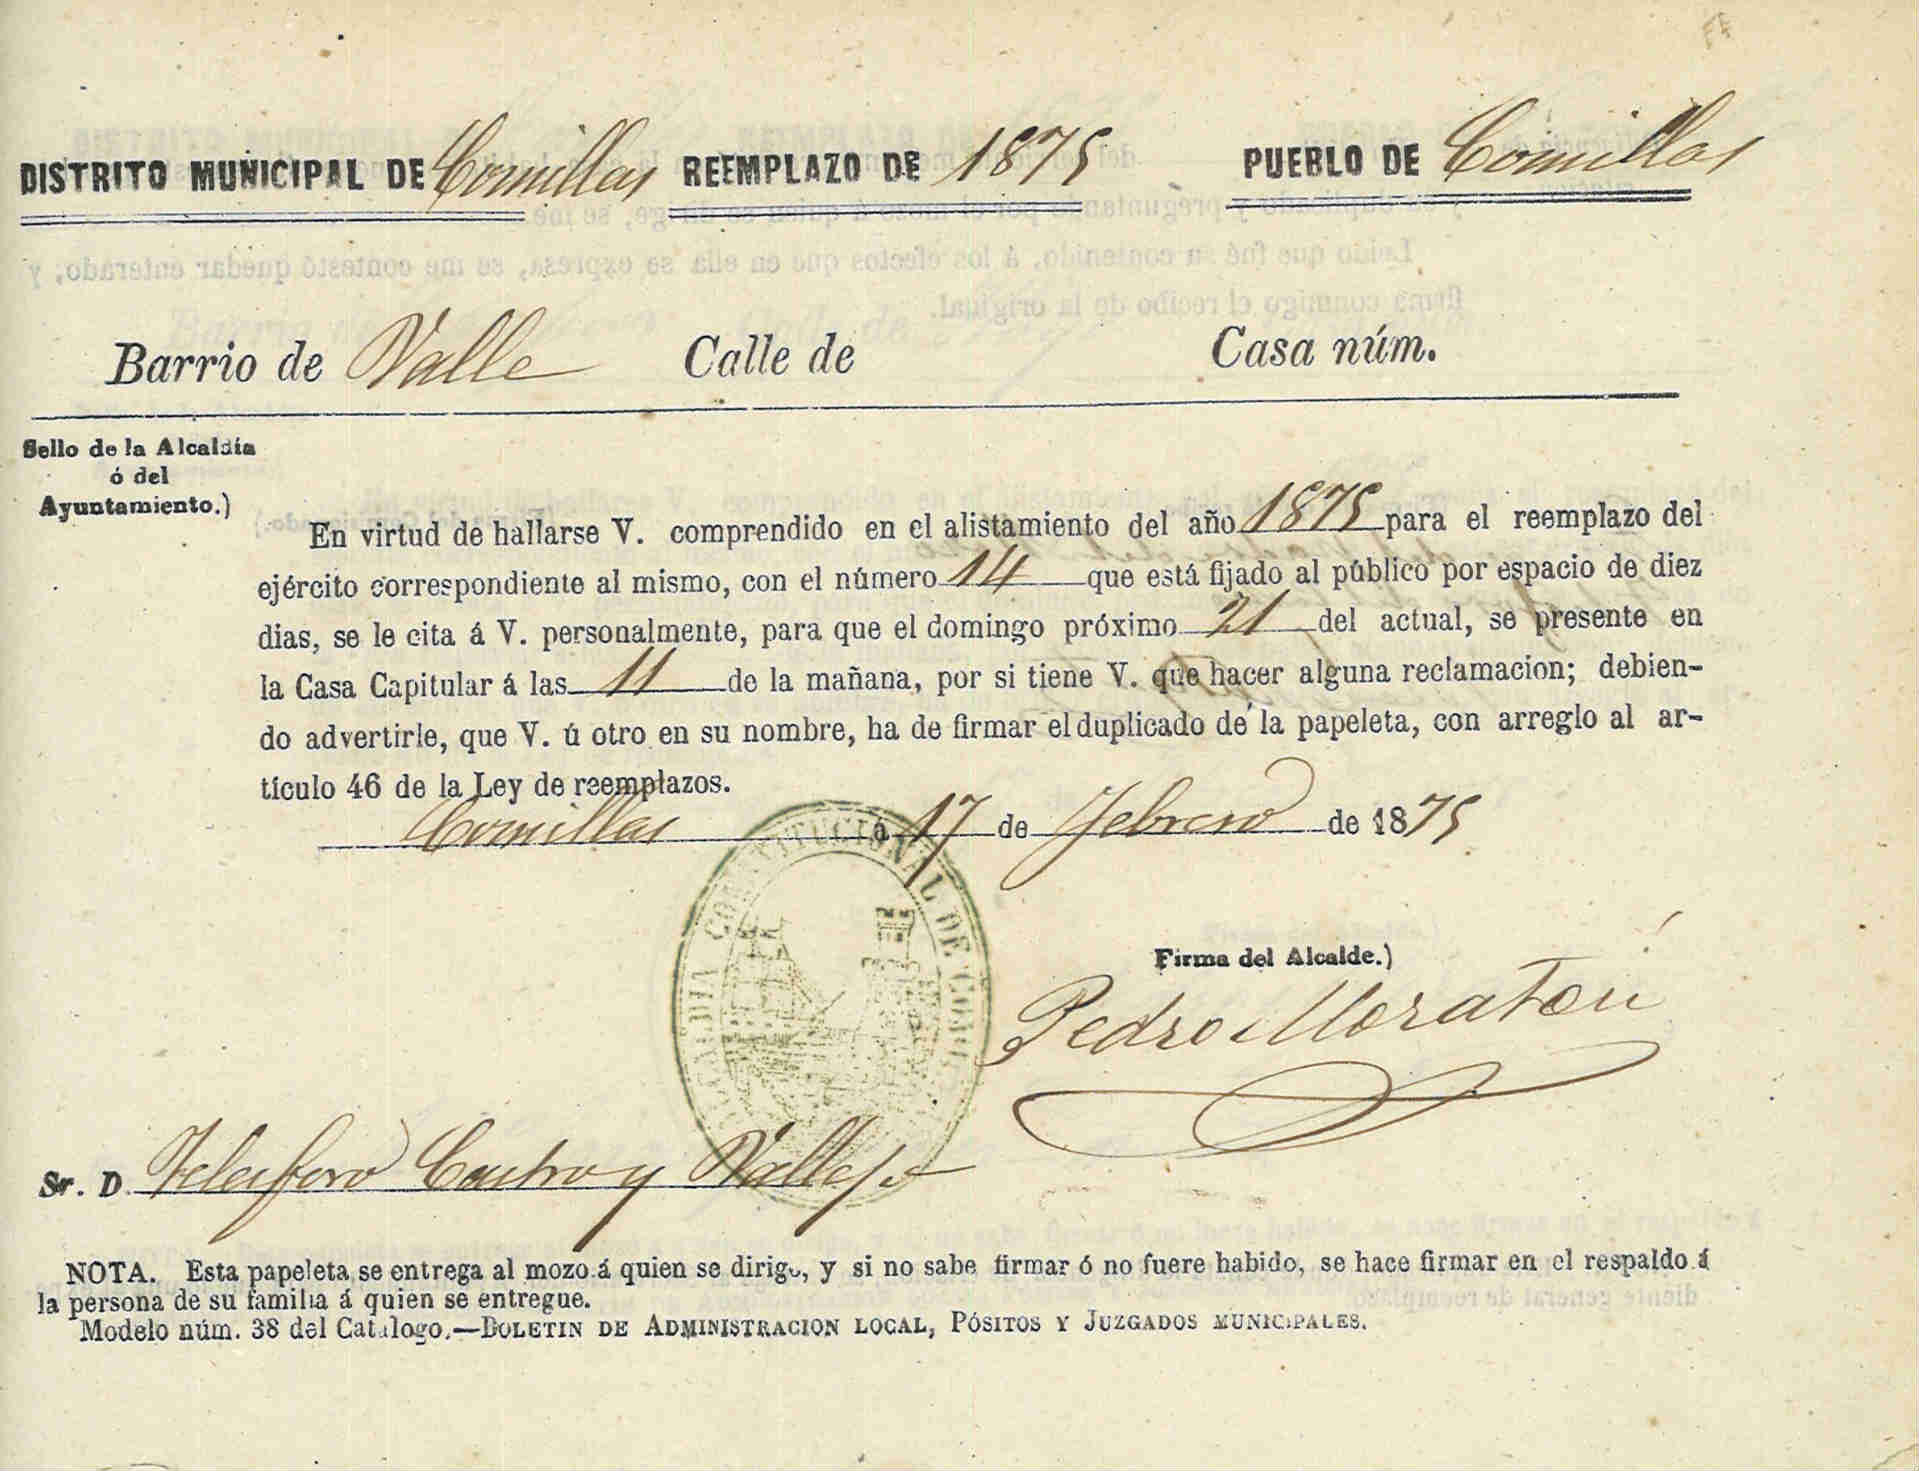 DISTRITO MUNICIPAL DE Comillas REEMPLAZO DE 1875 PUEBLO DE Comillas
Barrio de Valle Calle de Casa núm.
Sello de la Alcaldía
ó del
Ayuntamiento.)
En virtud de hallarse V. comprendido en el alistamiento del año 1875 para el reemplazo del
ejército correspondiente al mismo, con el número 14 que está fijado al público por espacio de diez
dias, se le cita á V. personalmente, para que el domingo próximo 21 del actual, se presente en
la Casa Capitular á las 11 de la mañana, por si tiene V. que hacer alguna reclamacion; debien-
do advertirle, que V. ú otro en su nombre, ha de firmar el duplicado de la papeleta, con arreglo al ar-
tículo 46 de la Ley de reemplazos.
Comillas á 17 de Febrero de 1875
ALCALDIA CONSTITUCIONAL DE COMILLAS
Firma del Alcalde.)
Pedro Moraton
Sr. D. Telesforo Castro y Vallejo
NOTA. Esta papeleta se entrega al mozo á quien se dirige, y si no sabe firmar ó no fuere habido, se hace firmar en el respaldo á
la persona de su familia á quien se entregue.
Modelo núm. 38 del Catalogo.—BOLETIN DE ADMINISTRACION LOCAL, PÓSITOS Y JUZGADOS MUNICIPALES.